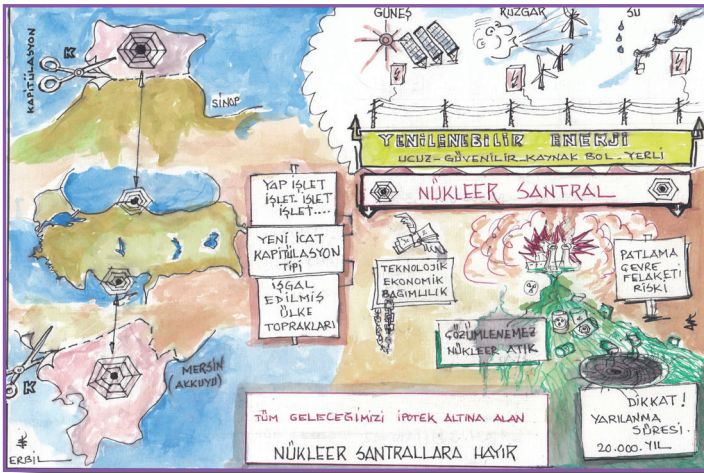 KAPİTÜLASYON
K
SİNOP
GÜNEŞ
RÜZGAR
SU
YENİLENEBİLİR ENERJİ
UCUZ-GÜVENİLİR KAYNAK BOL-YERLİ
NÜKLEER SANTRAL
YAP İŞLET
İŞLET İŞLET
İŞLET....
YENİ İCAT
KAPİTÜLASYON
TİPİ
İŞGAL
EDİLMİŞ
ÜLKE
TOPRAKLARI
TEKNOLOJİK
EKONOMİK
BAĞIMLILIK
PATLAMA
ÇEVRE
FELAKETİ
RİSKİ
ÇÖZÜMLENEMEZ
NÜKLEER ATIK
DİKKAT!
YARILANMA
SÜRESİ.
20.000.YIL
K
MERSİN
(AKKUYU)
ERBİL
TÜM GELECEĞİMİZİ İPOTEK ALTINA ALAN
NÜKLEER SANTRALLARA HAYIR